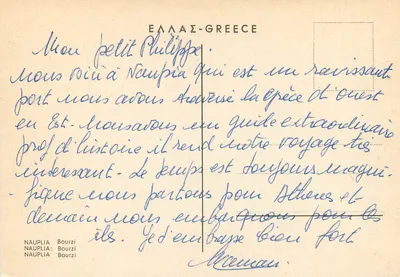 ΕΛΛΑΣ-GREECE
Mon petit Philippe.
Nous voici à Nauplia qui est un ravissant
port nous avons traversé la Grèce d'ouest
en Est - Nous avons un guide extraordinaire
prof d'histoire il rend notre voyage très
intéressant - Le temps est toujours magni-
fique nous partons pour Athènes et
demain nous embarquons pour les
îles. Je t'embrasse bien fort
Maman.
NAUPLIA Bourzi
NAUPLIA: Bourzi
NAUPLIA Bourzi